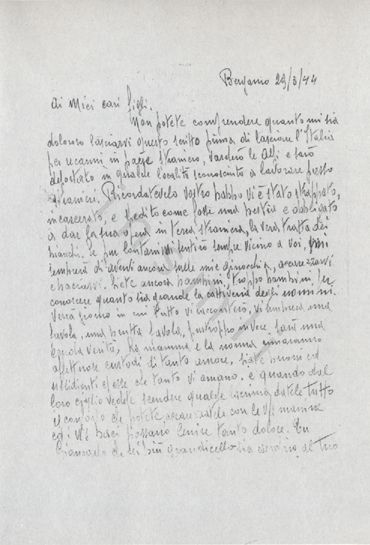 Bergamo 29/3/44
Ai Miei cari figli.
Non potete comprendere quanto mi sia
doloroso lasciarvi questo scritto prima di lasciare l'Italia
per recarmi in paese straniero, varcherò le Alpi e sarò
deportato in qualche località sconosciuta a lavorare presso
stranieri. Ricordatevelo vostro babbo vi è stato strappato,
incarcerato, e spedito come fosse una bestia e obbligato
a dar la sua opera in terra straniera, la vera tratta dei
bianchi. e pur lontano mi sentirò sempre vicino a voi, mi
sembrerà di avervi ancora sulle mie ginocchia, accarezzarvi
e baciarvi. Siete ancora bambini, troppo bambini per
conoscere quanto sia grande la cattiveria degli uomini.
Verrà giorno in cui tutto vi racconterò, vi sembrerà una
favola, una brutta favola, purtroppo invece sarà una
cruda verità, la mamma e la nonna rimarranno
affettuose custodi di tanto amore, siate buoni ed
ubbidienti ad esse che tanto vi amano. e quando dal
loro ciglio vedete scendere qualche lacrima, datele tutto
il conforto che potete accarezzatele con le vs manine
ed i vs baci possano lenire tanto dolore. Tu
che sei più grandicello sia esempio al tuo